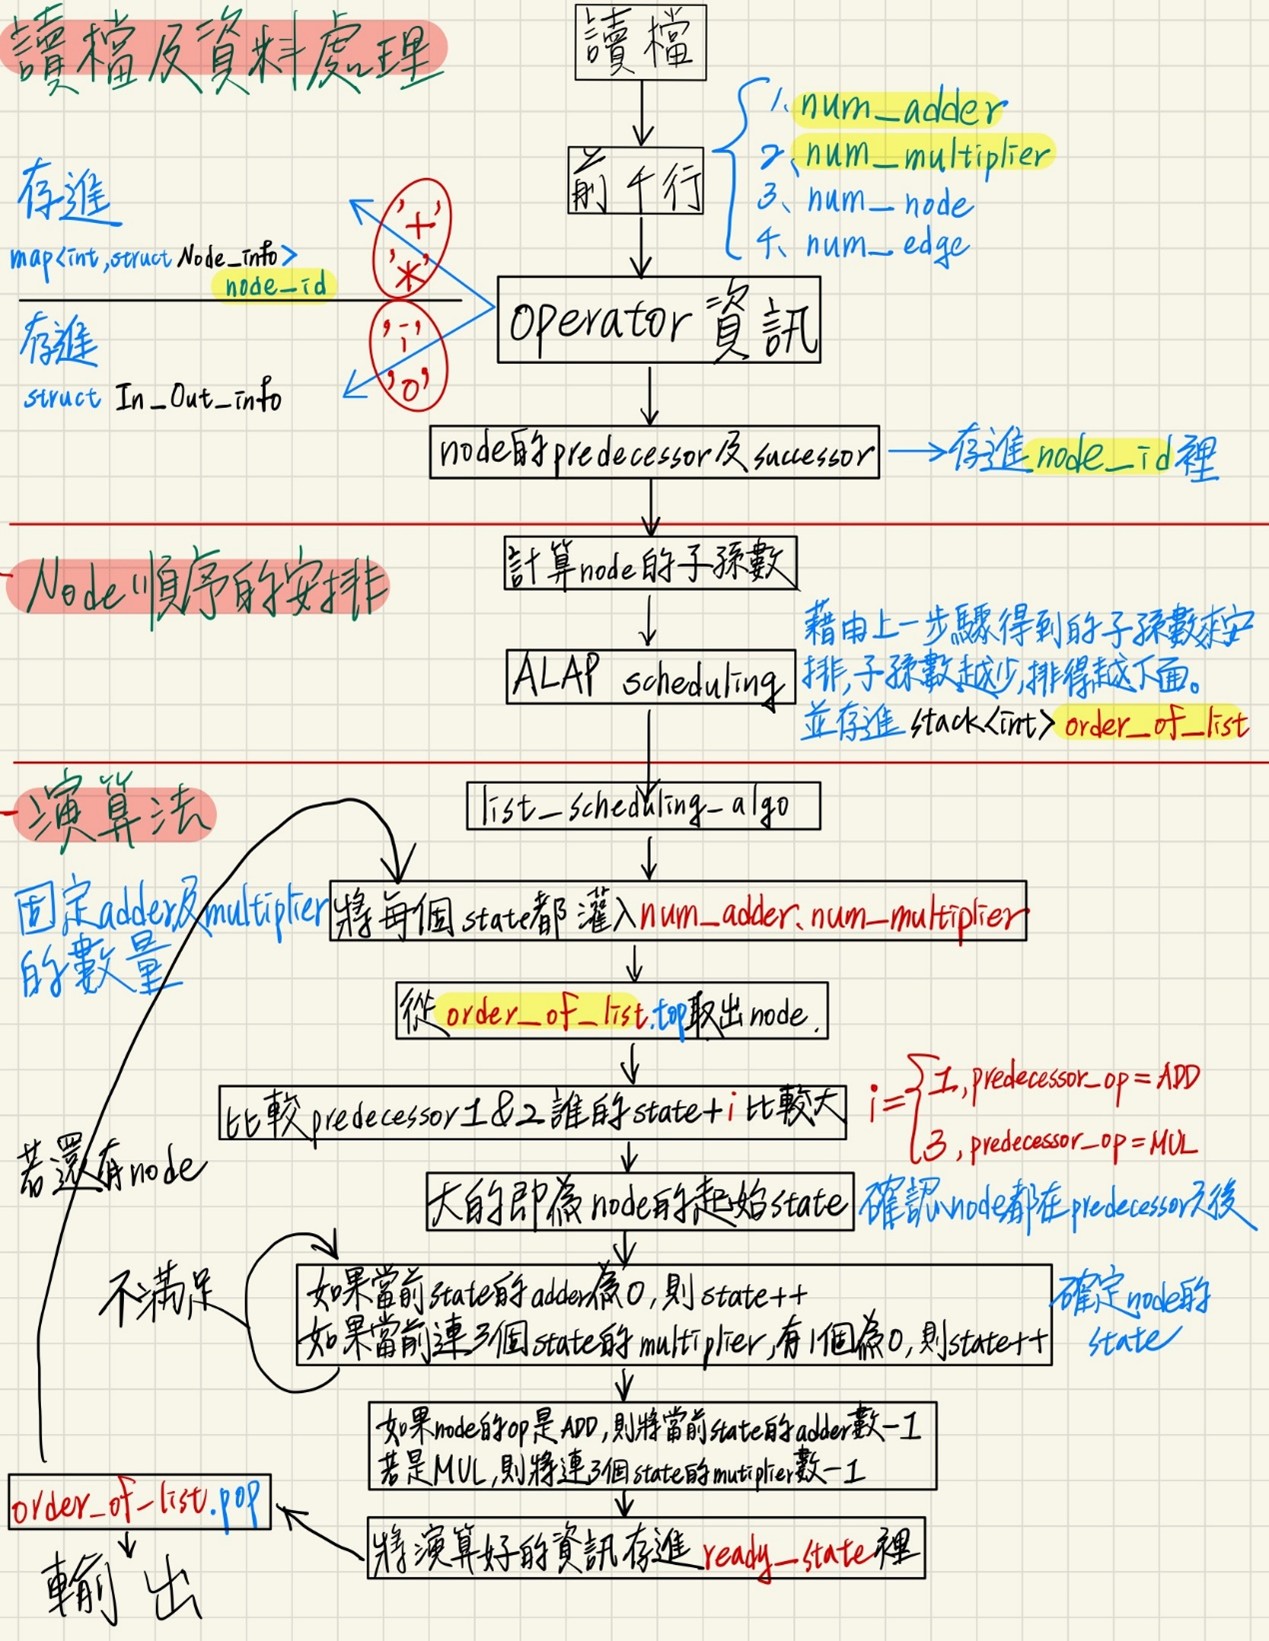 讀檔及資料處理
讀檔
前4行
1、num_adder
2、num_multiplier
3、num_node
4、num_edge
存進
map<int,struct Node_info>
node_id
'+'
'*'
存進
struct In_Out_info
'i'
'o'
operator 資訊
node的predecessor及successor
存進node_id裡
Node順序的安排
計算node的子孫數
ALAP scheduling
藉由上一步驟得到的子孫數來安
排,子孫數越少,排得越下面。
並存進 stack<int> order_of_list
演算法
list_scheduling_algo
固定adder及multiplier
的數量
將每個state都灌入num_adder、num_multiplier
從order_of_list.top取出node.
比較predecessor1&2誰的state+i比較大
i={1, predecessor_op=ADD
3, predecessor_op=MUL
若還有node
大的即為node的起始state
確認node都在predecessor之後
不滿足
如果當前state的adder為0,則state++
如果當前連3個state的multiplier,有1個為0,則state++
確定node的
state
如果node的op是ADD,則將當前state的adder數-1
若是MUL,則將連3個state的mutiplier數-1
order_of_list.pop
將演算好的資訊存進ready_state裡
輸出